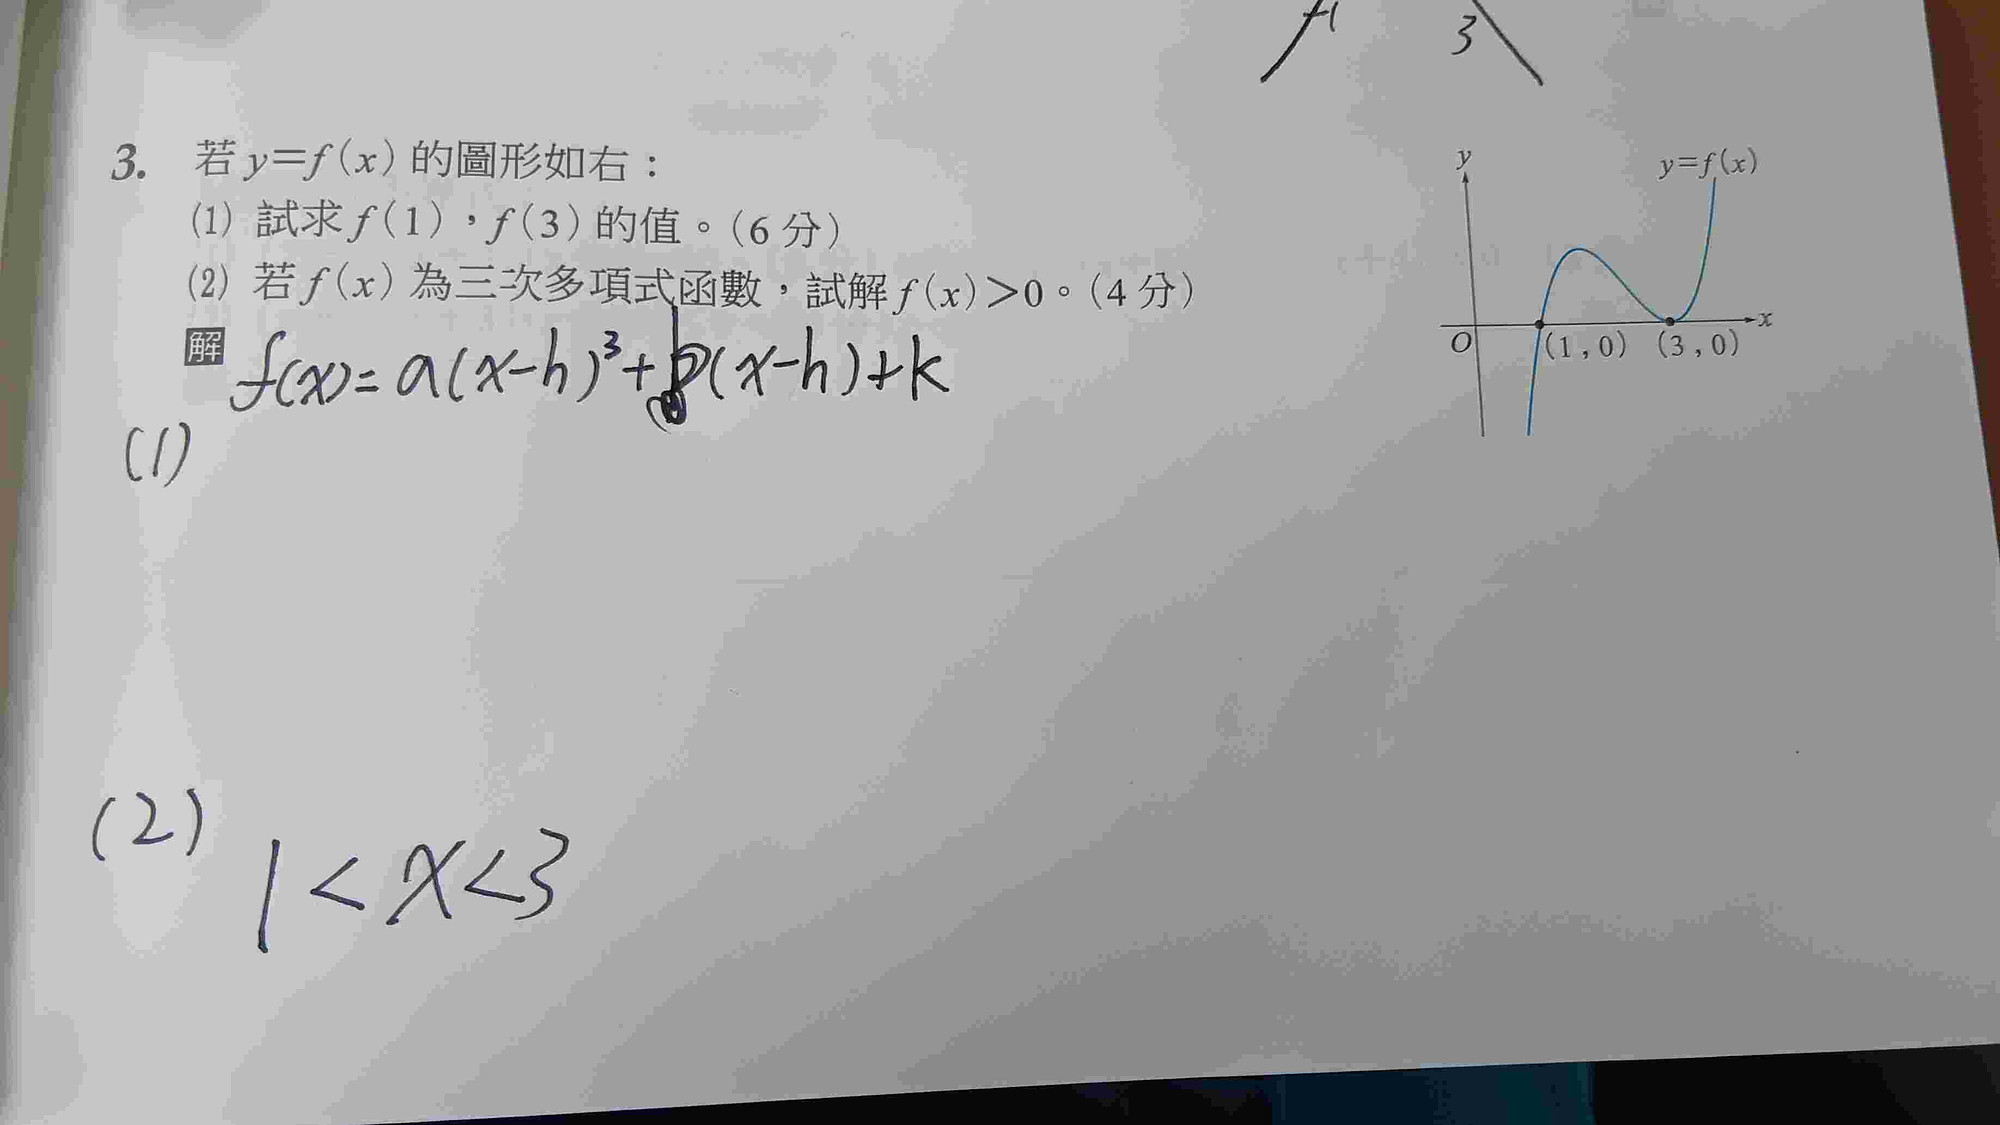 3
3. 若 y=f(x) 的圖形如右：
(1) 試求 f(1)，f(3) 的值。(6 分)
(2) 若 f(x) 為三次多項式函數，試解 f(x)>0。(4 分)
解 f(x)=a(x-h)³+p(x-h)+k
(1)
(2) 1<x<3
y
y=f(x)
x
O
(1,0)
(3,0)